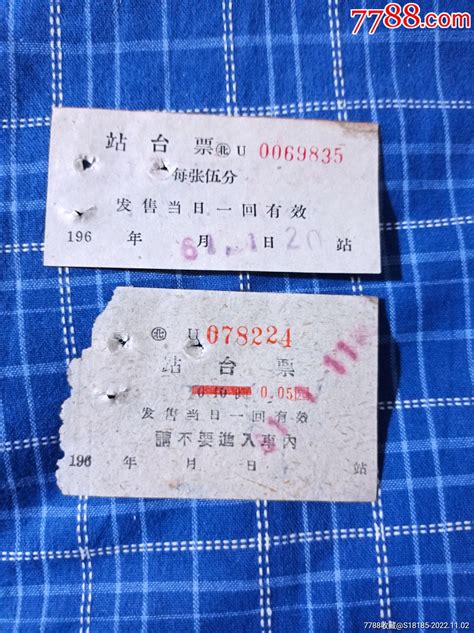 7788.com
站台票 ㊗北 U 0069835
每张伍分
发售当日一回有效
196 年 月 日 站
61.1.20
北 U 078224
站台票
0.05
发售当日一回有效
請不要進入車內
196 年 月 日 站
7788收藏@S18185-2022.11.02